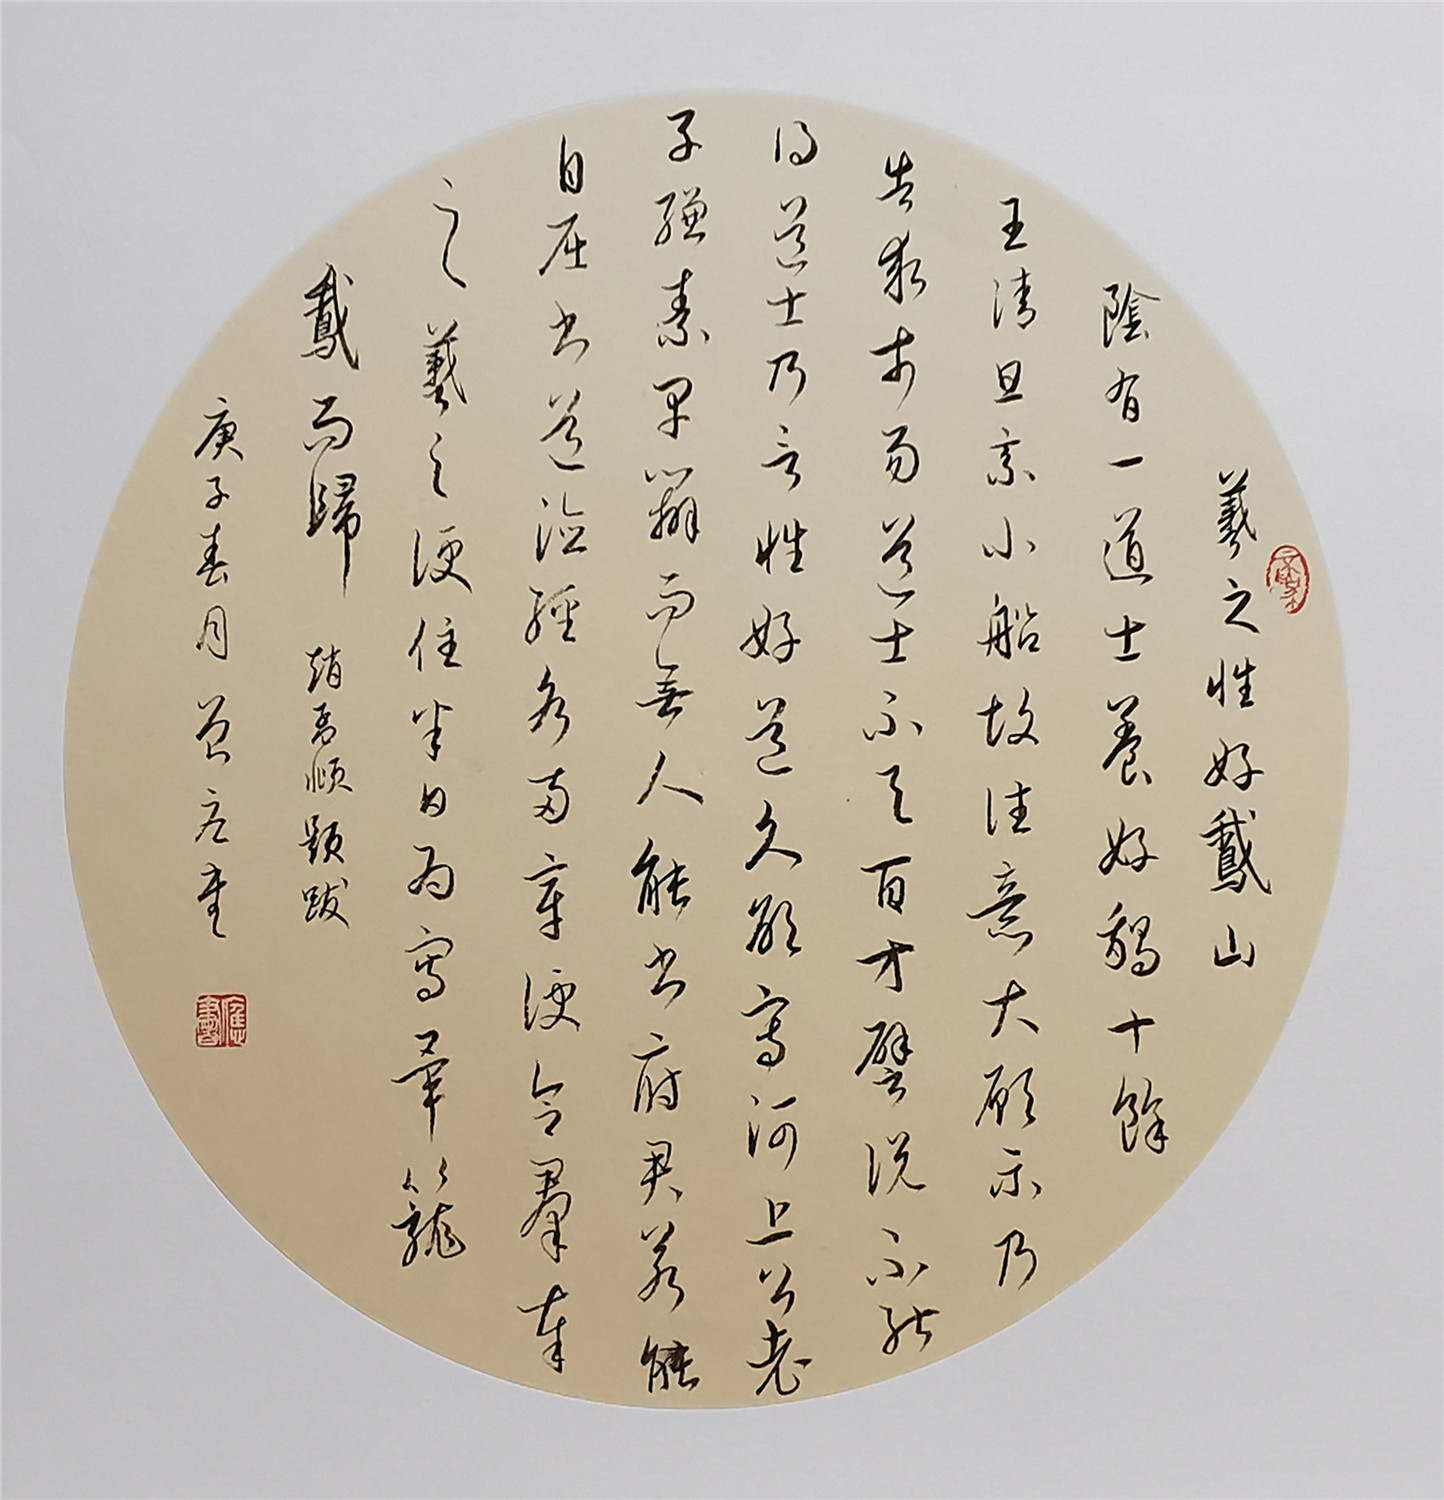 羲之性好鵞山
陰有一道士養好鵝十餘
王清旦乘小船故往意大願樂乃
告求市易道士不與百方譬說不能
得道士乃言性好道久欲寫河上公老
子縑素早辦而無人能書府君若能
自屈書道德經各兩章便合羣奉
之羲之便住半日為寫畢籠
鵞而歸 趙孟頫題跋
庚子春月